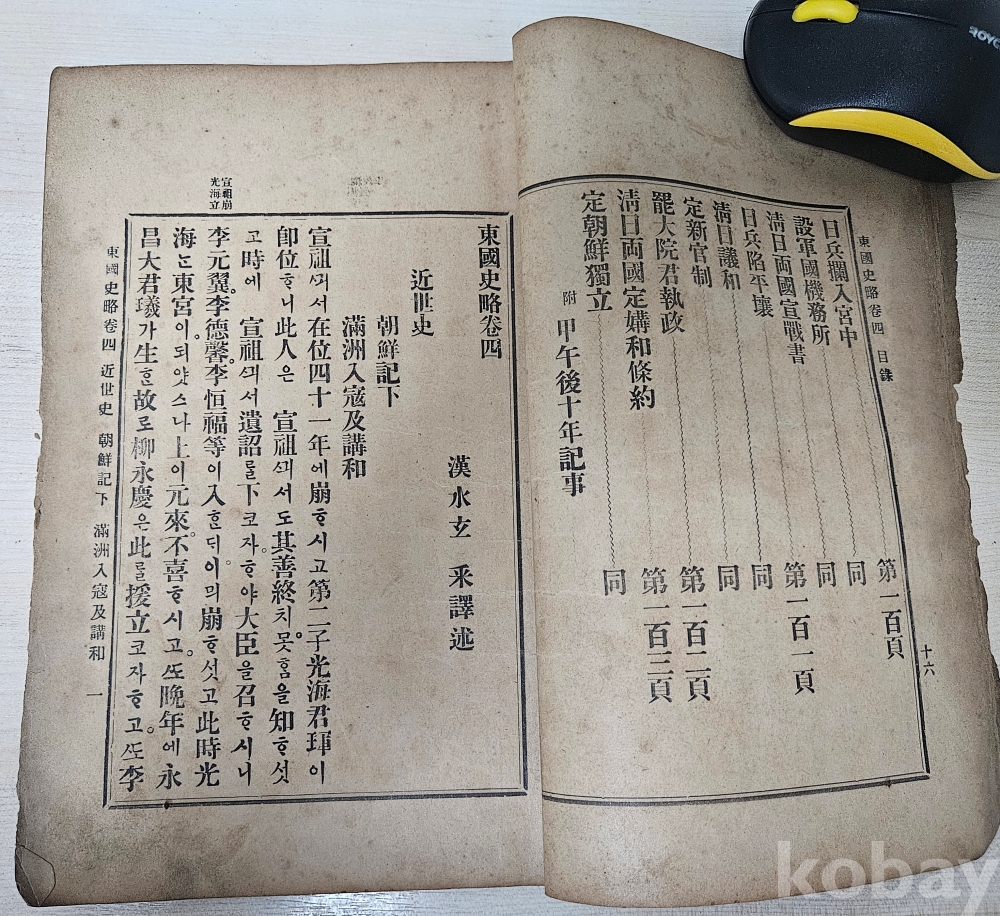 東國史略卷四 目錄 十六
日兵攔入宮中 第一百頁
設軍國機務所 同
淸日両國宣戰書 同
日兵陷平壤 第一百一頁
淸日議和 同
定新官制 同
罷大院君執政 第一百二頁
淸日両國定媾和條約 第一百三頁
定朝鮮獨立 同
附 甲午後十年記事
東國史略卷四
漢水玄 采譯述
近世史
朝鮮記下
滿洲入寇及講和
宣祖ᄭᅴ서在位四十一年에崩ᄒᆞ시고第二子光海君琿이
卽位ᄒᆞ니此人은 宣祖ᄭᅴ서도其善終치못ᄒᆞᆷ을知ᄒᆞ섯
고時에 宣祖ᄭᅴ서遺詔를下코자ᄒᆞ야大臣을召ᄒᆞ시니
李元翼。李德馨。李恒福等이入ᄒᆞᆫ듸。이믜崩ᄒᆞ섯고此時光
海ᄂᆞᆫ東宮이。되얏스나上이元來。不喜ᄒᆞ시고。ᄯᅩ晩年에永
昌大君㼁가生ᄒᆞᆫ故로柳永慶은此를援立코자ᄒᆞ고。ᄯᅩ李
宣祖崩
光海立
東國史略卷四 近世史 朝鮮記下 滿洲入寇及講和 一
ROYC
kobay